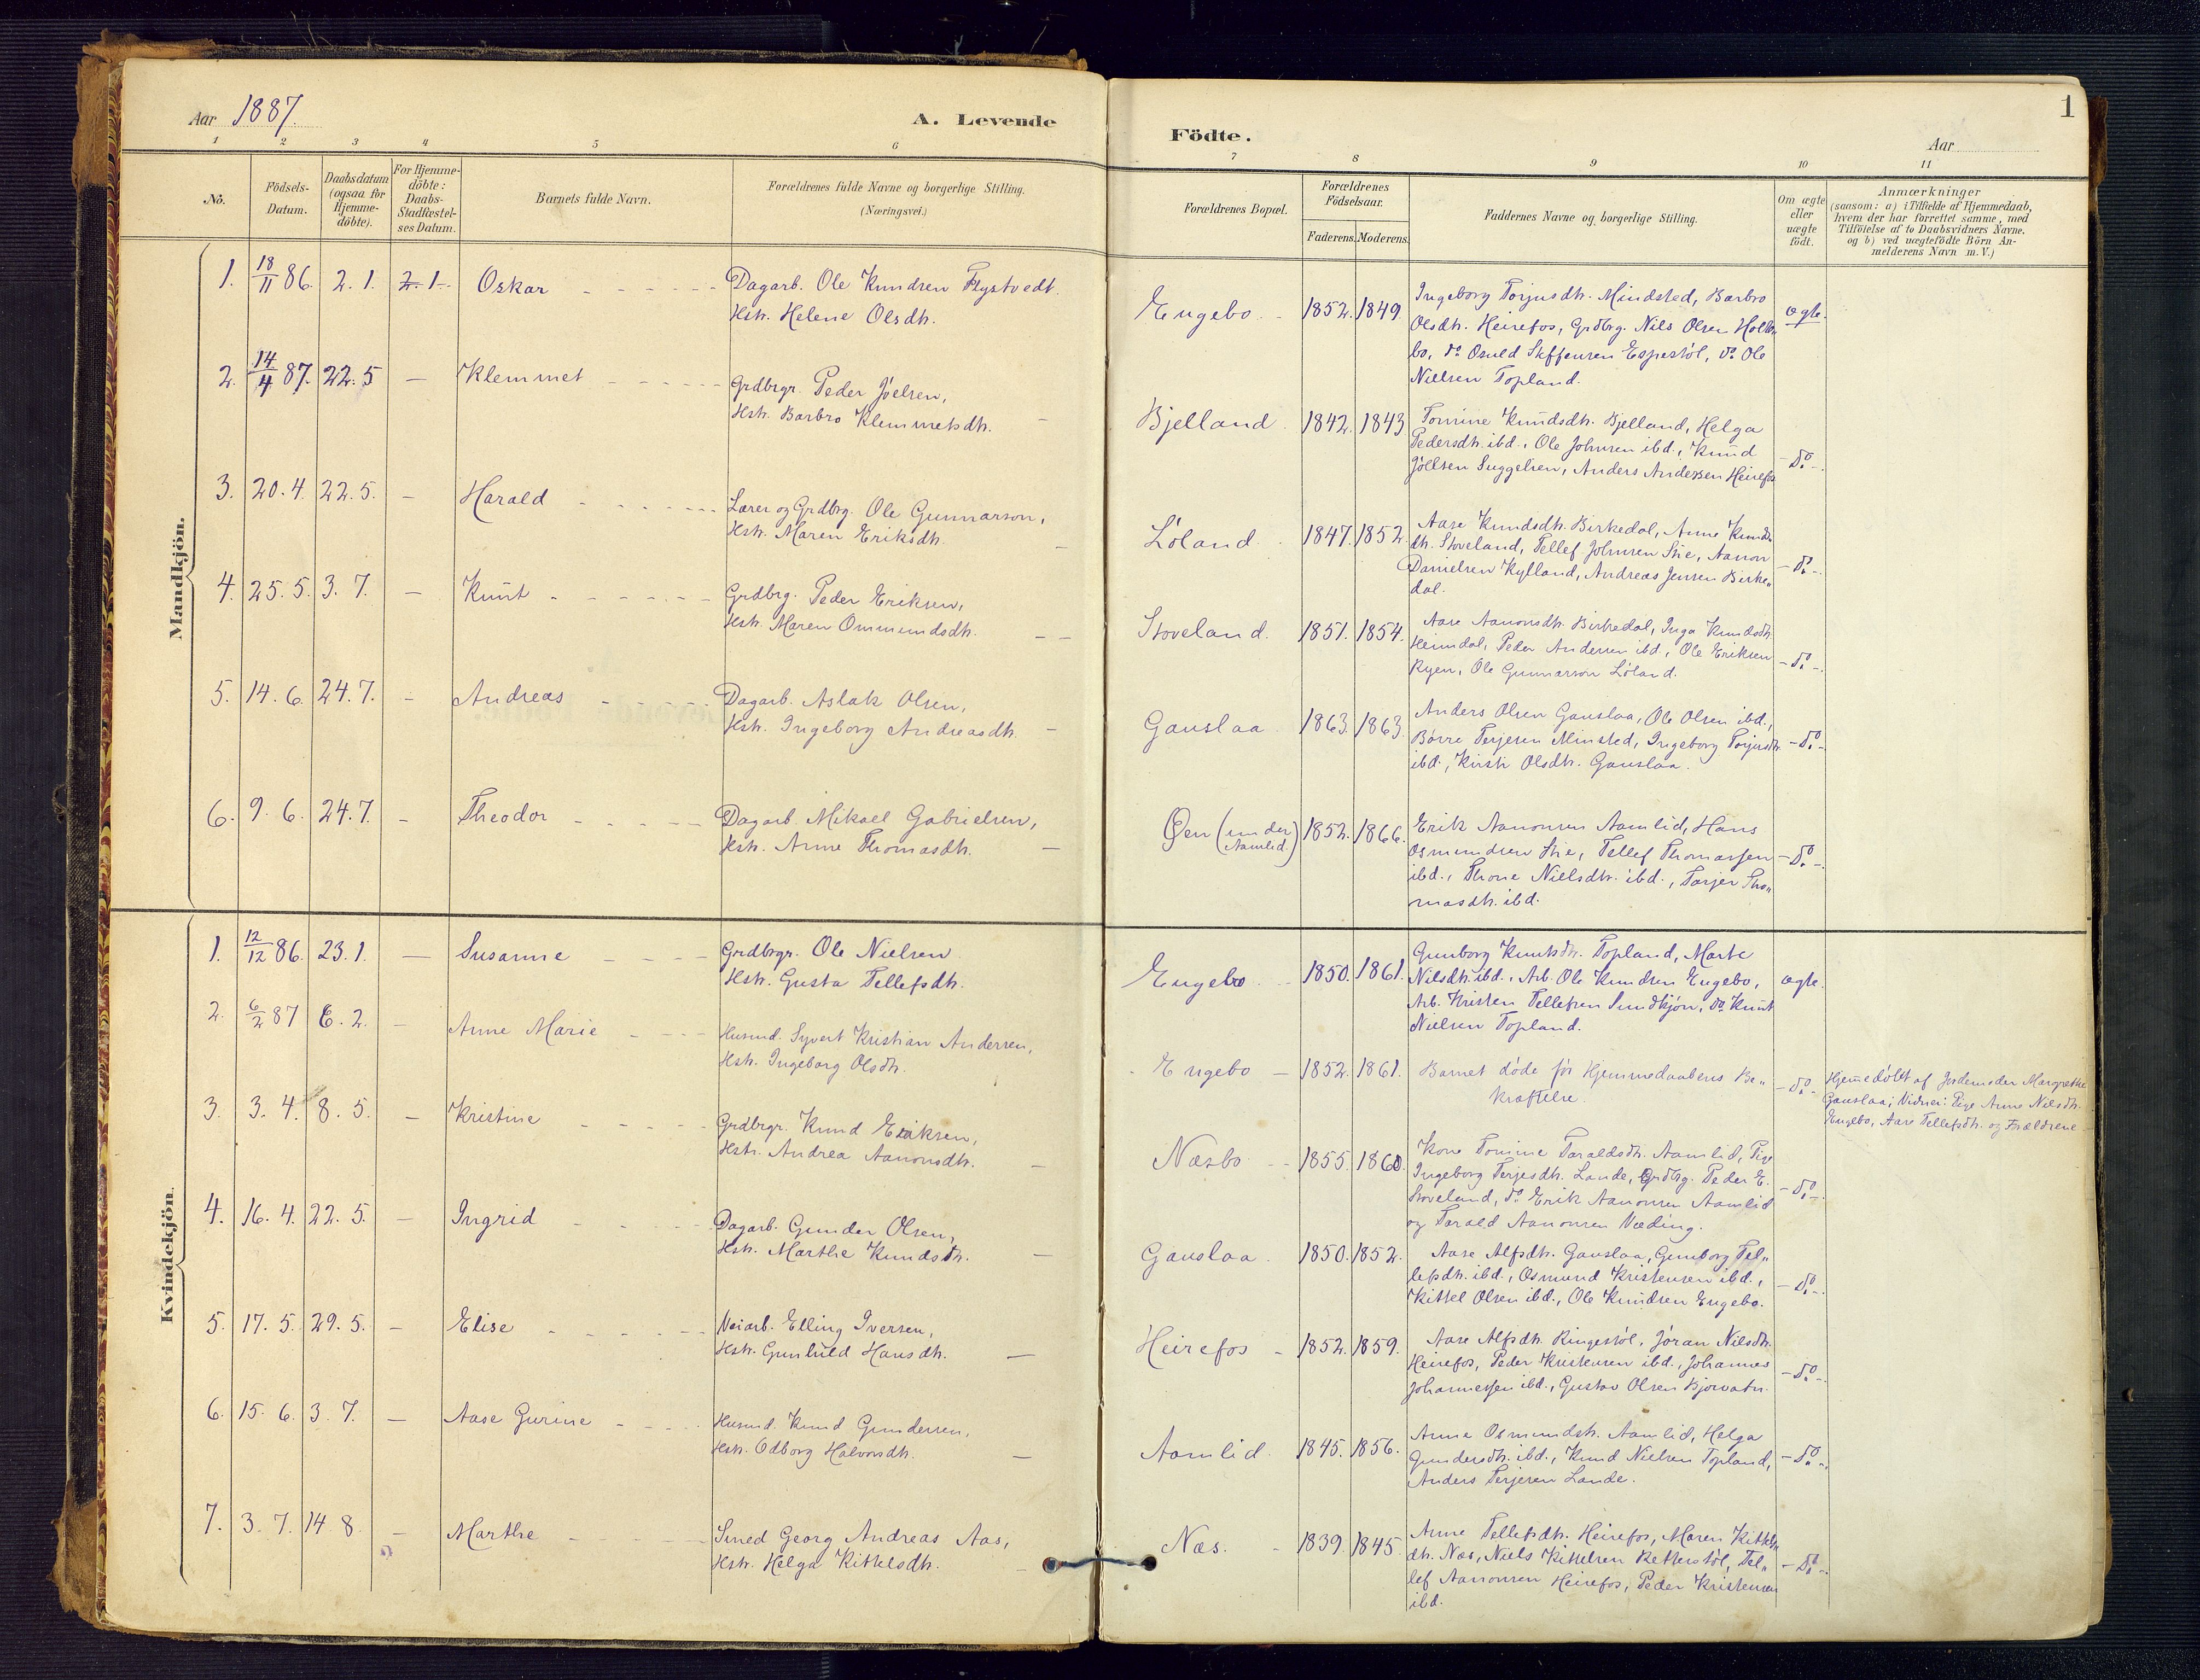 1
Aar 1887.
A. Levende
Födte.
Aar
1 2 3 4 5 6 7 8 9 10 11
No.
Födsels-
Datum.
Daabsdatum
(ogsaa for
Hjemme-
döbte).
For Hjemme-
döbte:
Daabs-
Stadfæstel-
ses Datum.
Barnets fulde Navn.
Forældrenes fulde Navne og borgerlige Stilling.
(Næringsvei.)
Forældrenes Bopæl.
Forældrenes
Födselsaar.
Faderens. Moderens.
Faddernes Navne og borgerlige Stilling.
Om ægte
eller
uægte
födt.
Anmærkninger
(saasom: a) i Tilfælde af Hjemmedaab,
hvem der har forrettet samme, med
Tilföielse af to Daabsvidners Navne.
og b) ved uægtefödte Börn An-
melderens Navn m. V.)
Mandkjön.
1. 18/11 86. 2. 1. 2. 1. Oskar
Dagarb. Ole Knudsen Flystvedt.
Hstr. Helene Olsdtr.
Engebo 1852. 1849.
Ingeborg Torjusdtr. Mindsted, Barbro
Olsdtr. Heirefos, Grdbrg. Nils Olsen Holte
bo, do Osuld Steffensen Espestøl, do Ole
Nielsen Topland.
ægte.
2. 14/4 87. 22. 5 — Klemmet
Grdbrgr. Peder Joelsen,
Hstr. Barbro Klemmetsdtr.
Bjelland 1842. 1843
Tomine Knudsdtr. Bjelland, Helga
Pedersdtr. ibd., Ole Johnsen ibd., Knud
Anders Andersen Heirefos
- do -
3. 20. 4. 22. 5. — Harald
Lærer og Grdbrg. Ole Gunnarson,
Hstr. Maren Eriksdtr.
Løland 1847. 1852.
Aase Knudsdtr. Birkedal, Anne Knuds
dtr. Stoveland, Tellef Johnsen Stie, Aanon
Danielsen Kylland, Andreas Jensen Birke„
dal.
- do -
4. 25. 5. 3. 7. — Knut
Grdbrg. Peder Eriksen,
Hstr. Maren Ommundsdtr.
Stoveland. 1851. 1854.
Aase Aanonsdtr. Birkedal, Inga Knudsdtr.
Heimdal, Peder Andersen ibd., Ole Eriksen
Ryen, Ole Gunnarson Løland.
- do -
5. 14. 6. 24. 7. - Andreas
Dagarb. Aslak Olsen,
Hstr. Ingeborg Andreasdtr.
Gauslaa 1863. 1863.
Anders Olsen Gauslaa, Ole Olsen ibd.,
Børre Terjesen Minsted, Ingeborg Torjusdtr.
ibd., Kirsti Olsdtr. Gauslaa.
- do -
6. 9. 6. 24. 7. - Theodor
Dagarb. Mikael Gabrielsen,
Hstr. Anne Thomasdtr.
Øen (under
Aamlid.) 1852. 1866.
Erik Aanonsen Aamlid, Hans
Osmundsen Stie, Tellef Thomassen
ibd., Thone Nielsdtr. ibd., Tarjer Tho„
masdtr. ibd.
- do -
Kvindekjön.
1. 12/12 86. 23. 1. — Susanne
Grdbrgr. Ole Nielsen
Hstr. Gusta Tellefsdtr.
Engebo 1850. 1861.
Gunborg Knutsdtr. Topland, Marte
Nilsdtr. ibd., Arb. Ole Knudsen Engebo,
Arb. Kristen Tellefsen do Knut
Nielsen Topland.
ægte.
2. 6/2 87 6. 2. - Anne Marie
Husmd. Syvert Kristian Andersen,
Hstr. Ingeborg Olsdtr.
Engebo — 1852. 1861.
Barnet døde før Hjemmedaabens Be„
kræftelse.
- do -
Hjemedøbt af Jordemoder Margrethe
Gauslaa; Vidner: Pige Anne Nilsdtr.
Engebo, Aase Tellefsdtr. og Forældrene
3. 3. 4. 8. 5. - Kristine
Grdbrgr. Knud Eriksen,
Hstr. Andrea Aanonsdtr.
Næsbo 1855. 1860.
Kone Tomine Taraldsdtr. Aamlid, Pige
Ingeborg Terjesdtr. Lande, Grdbrg. Peder E.
Stoveland, do Erik Aanonsen Aamlid
og Tarald Aanonsen Væding.
- do -
4. 16. 4. 22. 5. - Ingrid
Dagarb. Gunder Olsen,
Hstr. Marthe Knudsdtr.
Gauslaa 1850. 1852.
Aase Alfsdtr. Gauslaa, Gunborg Tel„
lefsdtr. ibd., Osmund Kristensen ibd.,
Kittel Olsen ibd., Ole Knudsen Engebo.
- do -
5. 17. 5. 29. 5. - Elise
Veiarb. Elling Iversen,
Hstr. Gunhild Hansdtr.
Heirefos 1852. 1859.
Aase Alfsdtr. Ringestøl, Jøran Nilsdtr.
Heirefos, Peder Kristensen ibd., Johannes
Johannessen ibd., Gustav Olsen Bjorvatn.
- do -
6. 15. 6. 3. 7. — Aase Gurine
Husmd. Knud Gundersen,
Hstr. Odborg Halvorsdtr.
Aamlid. 1845. 1856.
Anne Osmundsdtr. Aamlid, Helga
Gundersdtr. ibd., Knud Nielsen Topland,
Anders Terjesen Lande.
- do -
7. 3. 7. 14 8. - Marthe
Smed Georg Andreas Aas,
Hstr. Helga Kittelsdtr.
Næs. 1839. 1845.
Anne Tellefsdtr. Heirefos, Maren Kittels„
dtr. Næs, Niels Kittelsen Tel„
lef Aanonsen Heirefos, Peder Kristensen
ibd.
- do -